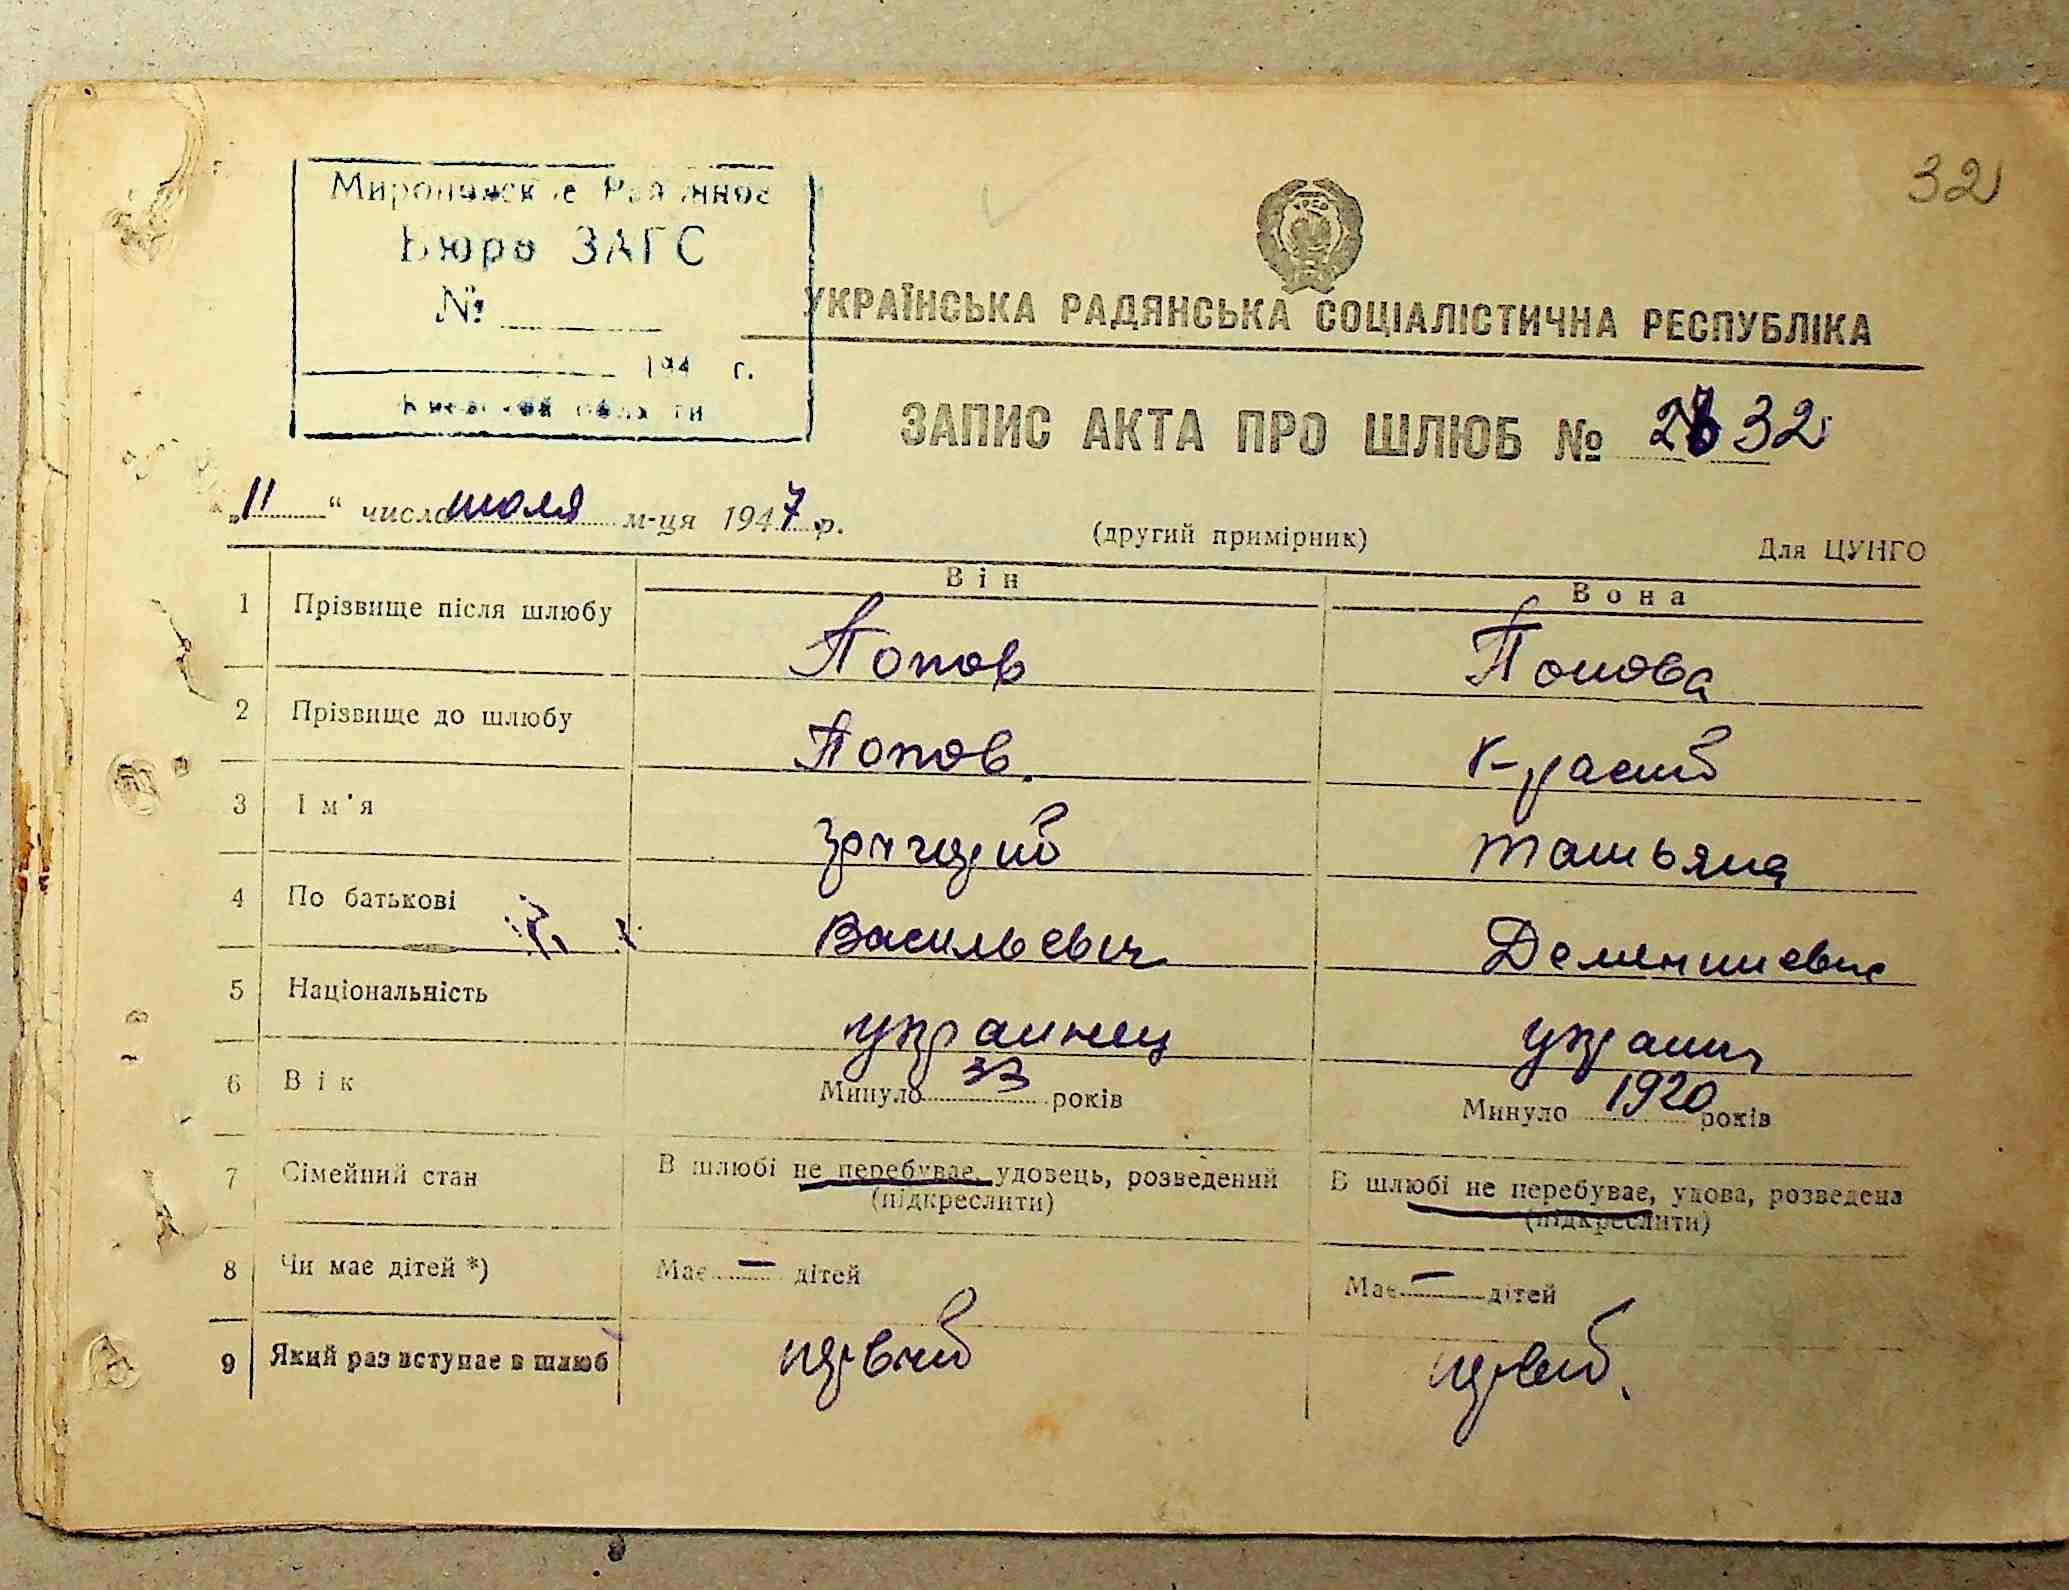 32
Бюро ЗАГС
№
194 г.
УРСР
УКРАЇНСЬКА РАДЯНСЬКА СОЦІАЛІСТИЧНА РЕСПУБЛІКА
ЗАПИС АКТА ПРО ШЛЮБ № 32
„11“ число июля м-ця 1947 р.
(другий примірник)
Для ЦУНГО
Він Вона
1 Прізвище після шлюбу Попов Попова
2 Прізвище до шлюбу Попов.
3 Ім'я Татьяна
4 По батькові Васильевич
5 Національність украинец
6 Вік Минуло 33 років Минуло 1920 років
7 Сімейний стан В шлюбі не перебуває, удовець, розведений В шлюбі не перебуває, удова, розведена
(підкреслити) (підкреслити)
8 Чи має дітей *) Має — дітей Має — дітей
9 Який раз вступає в шлюб